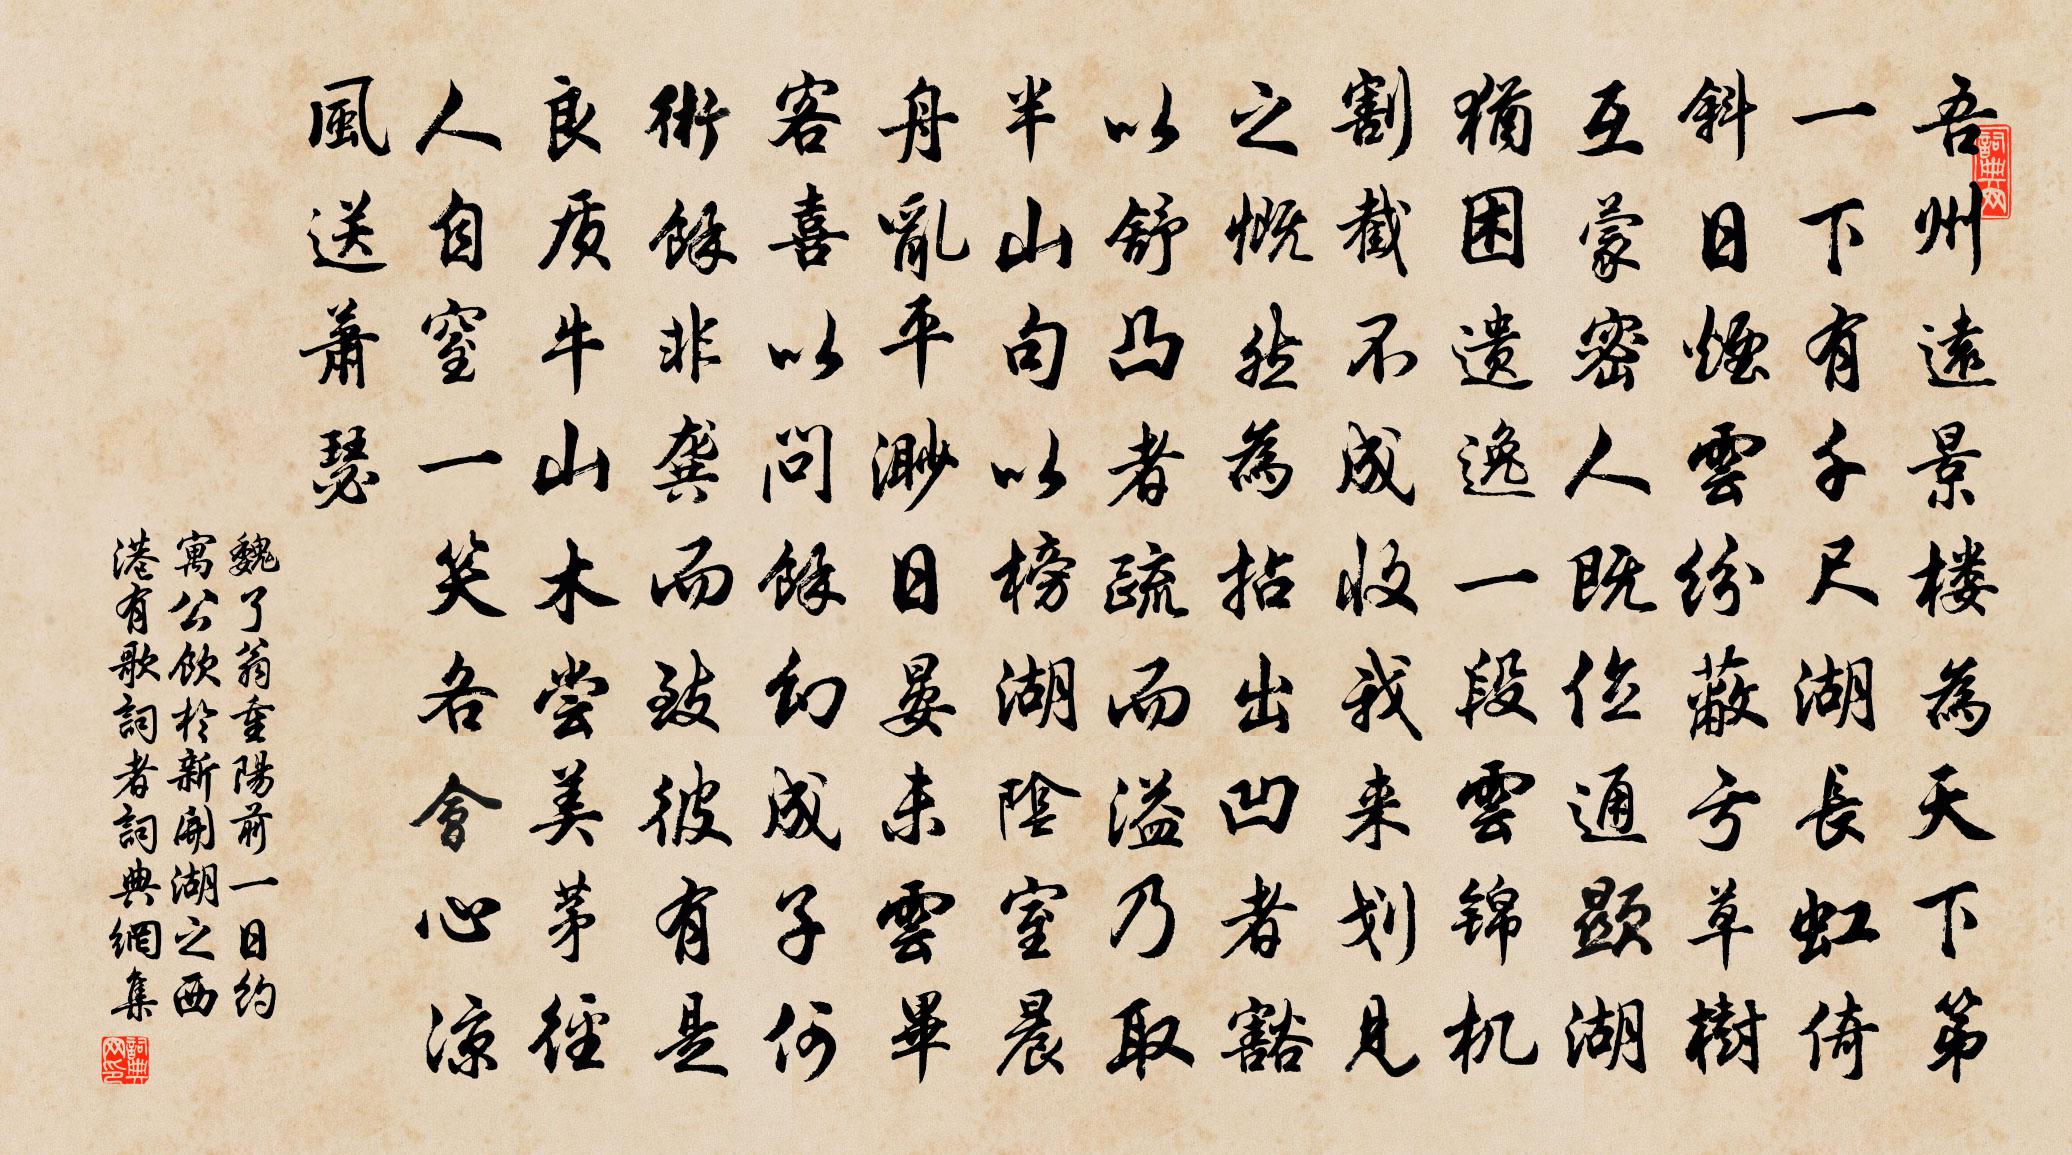 吾州遠景楼為天下第
一下有千尺湖長虹倚
斜日煙雲紛蔽亏草樹
互蒙密人既位通顯湖
猶困遗逸一段雲锦机
割截不成收我来划見
之慨然為拈出凹者豁
以舒凸者疏而溢乃取
半山句以榜湖陰室晨
舟亂平渺日晏未雲畢
客喜以問餘幻成子何
術餘非龚而致彼有是
良质牛山木尝美茅徑
人自窒一笑各會心凉
風送萧瑟
魏了翁重陽前一日約
寓公飲於新開湖之西
港有歌詞者詞典網集
詞典网
詞典网印